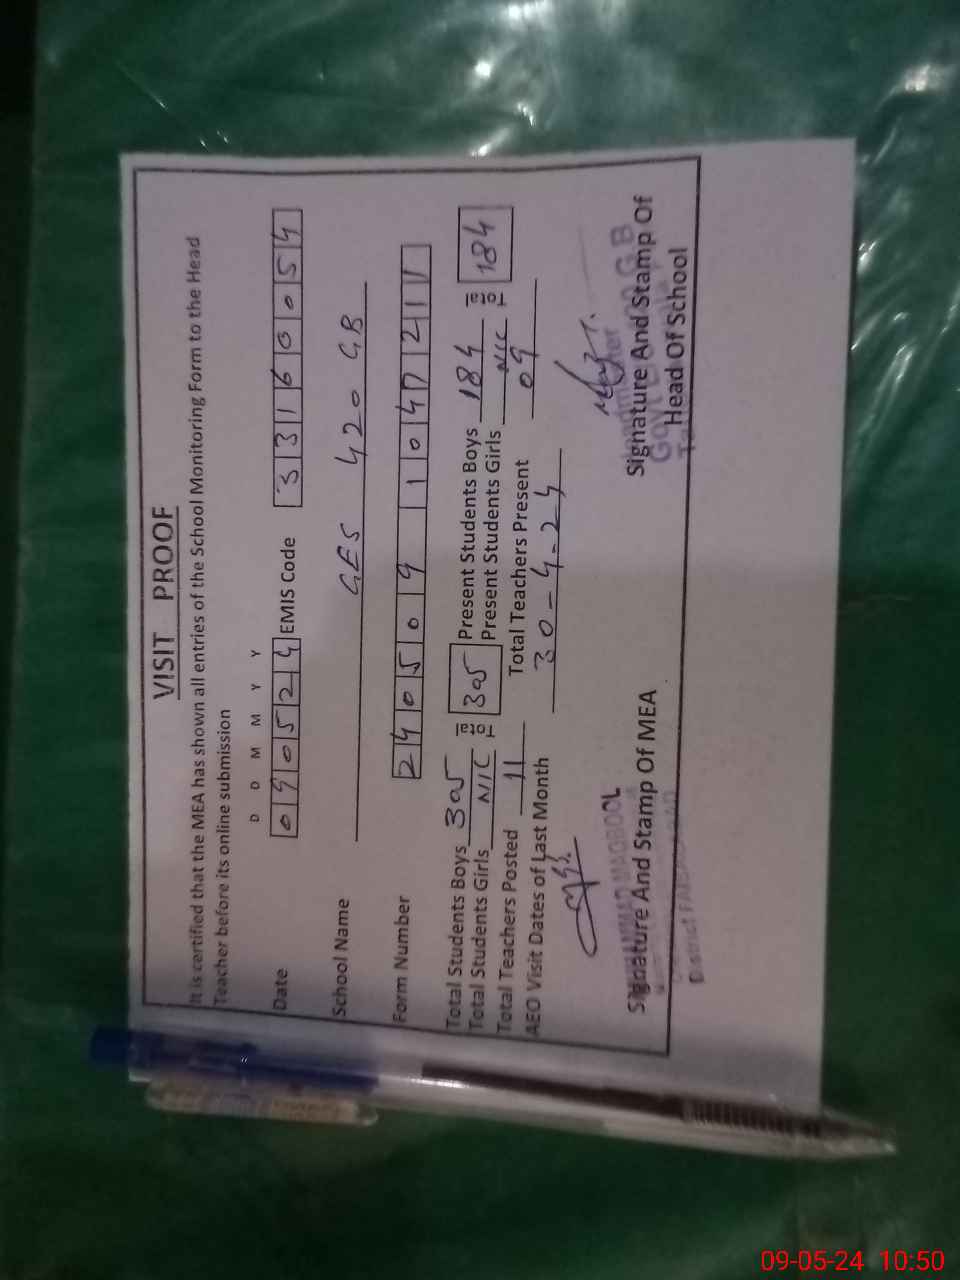 VISIT PROOF
It is certified that the MEA has shown all entries of the School Monitoring Form to the Head
Teacher before its online submission
D D M M Y Y
Date 090524 EMIS Code 33160054
School Name GES 420 GB
Form Number 240509 1047211
Total Students Boys 305 Total 305 Present Students Boys 184 Total 184
Total Students Girls NIL Present Students Girls NIL
Total Teachers Posted 11 Total Teachers Present 09
AEO Visit Dates of Last Month 30-4-24
MUHAMMAD MAQBOOL
Signature And Stamp Of MEA Signature And Stamp Of
Head Of School
District
09-05-24 10:50